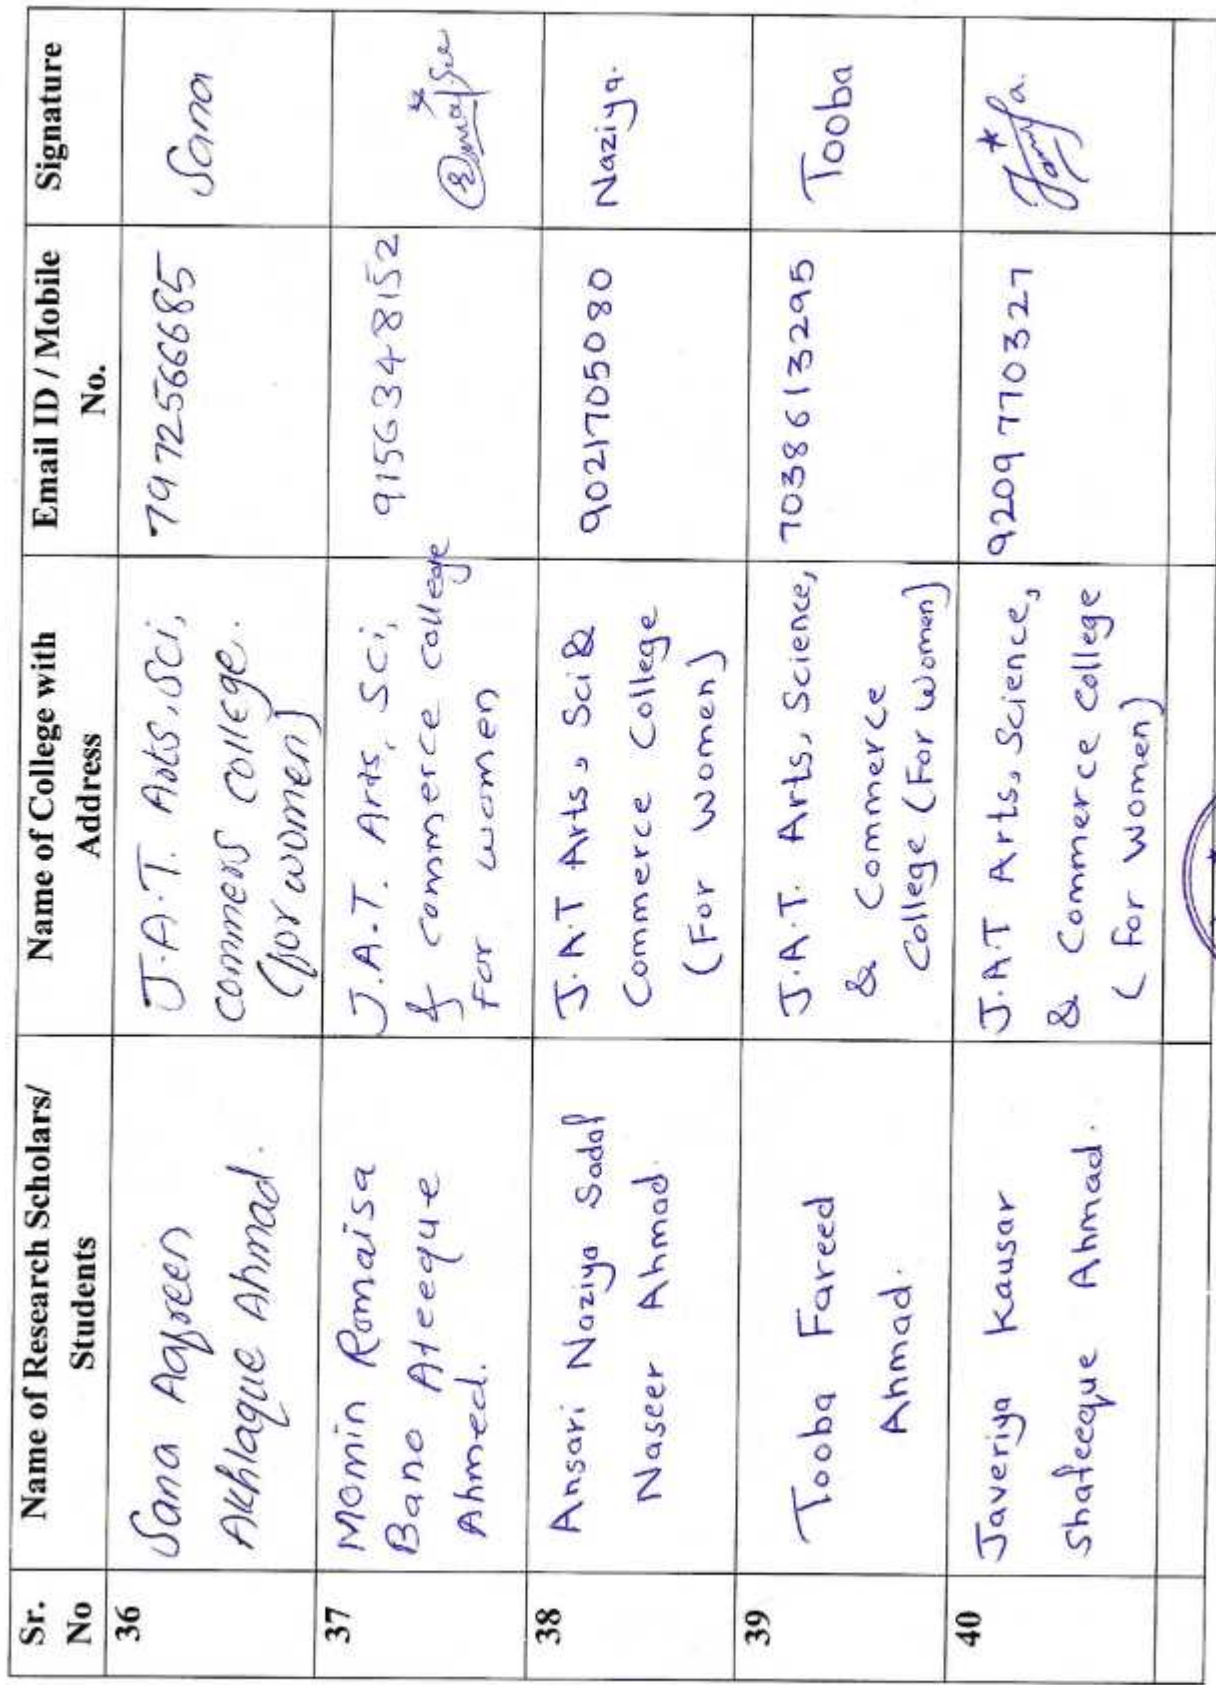 Sr. No
Name of Research Scholars/ Students
Name of College with Address
Email ID / Mobile No.
Signature
36
Sana Aafreen
Akhlaque Ahmad.
J.A.T. Arts, Sci,
commers college.
(for women)
7972566685
Sana
37
Momin Romaisa
Bano Ateeque
Ahmed.
J.A.T. Arts, Sci,
& commerce college
For women
9156348152
38
Ansari Naziya Sadaf
Naseer Ahmad.
J.A.T Arts, Sci &
Commerce College
(For Women)
9021705080
Naziya.
39
Tooba Fareed
Ahmad.
J.A.T. Arts, Science,
& Commerce
College (For Women)
7038613295
Tooba
40
Javeriya Kausar
Shafeeque Ahmad.
J.A.T Arts, Science,
& Commerce College
(For Women)
9209770327